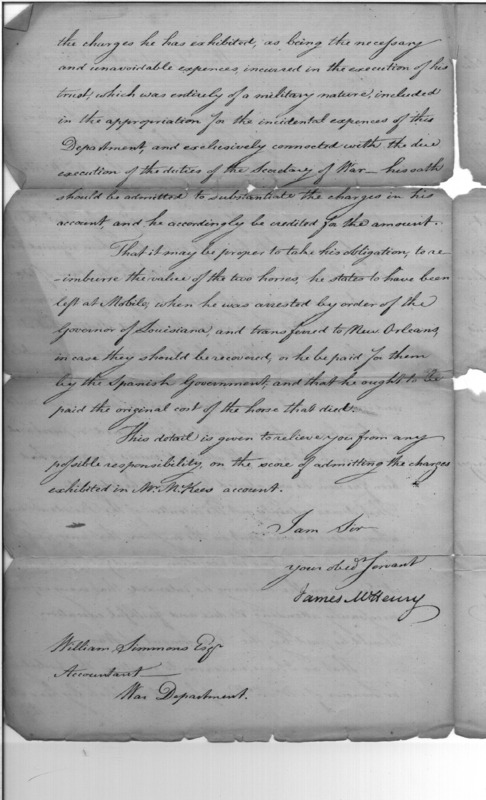 the charges he has exhibited, as being the necessary
and unavoidable expences, incurred in the execution of his
trust, which was entirely of a military nature, included
in the appropriation for the incidental expences of this
Department, and exclusively connected with the due
execution of the duties of the Secretary of War — his oath
should be admitted to substantiate the charges in his
account, and he accordingly be credited for the amount.
That it may be proper to take his obligation, to re-
-imburse the value of the two horses, he states to have been
left at Mobile, when he was arrested by order of the
Governor of Louisiana, and transferred to New Orleans,
in case they should be recovered, or he be paid for them
by the Spanish Government, and that he ought to be
paid the original cost of the horse that died.
This detail is given to relieve you from any
possible responsibility, on the score of admitting the charges
exhibited in Mr. McKees account.
I am Sir
your obedt. Servant
James McHenry
William Simmons Esqr
Accountant —
War Department.